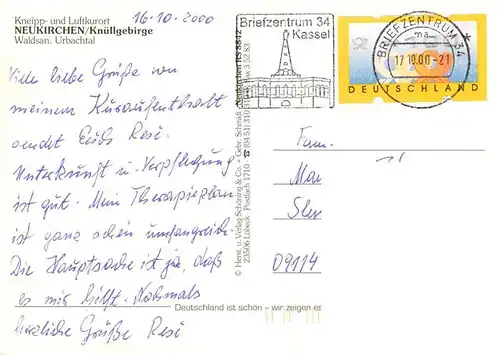 Kneipp- und Luftkurort
NEUKIRCHEN/Knüllgebirge
Waldsan. Urbachtal
16.10.2000
Viele liebe Grüße von
meinem Kuraufenthalt
sendet Euch Resi.
Unterkunft u. Verpflegung
ist gut. Mein Therapieplan
ist ganz schön umfangreich.
Die Hauptsache ist ja, daß
es mir hilft. Nochmals
herzliche Grüße Resi
Deutschland ist schön – wir zeigen es
© Herst. u. Verlag Schöning & Co. + Gebr. Schmidt
23506 Lübeck Postfach 1710
Briefzentrum 34
Kassel
BRIEFZENTRUM 34
ma
17.10.00-21
DEUTSCHLAND
Fam.
09114